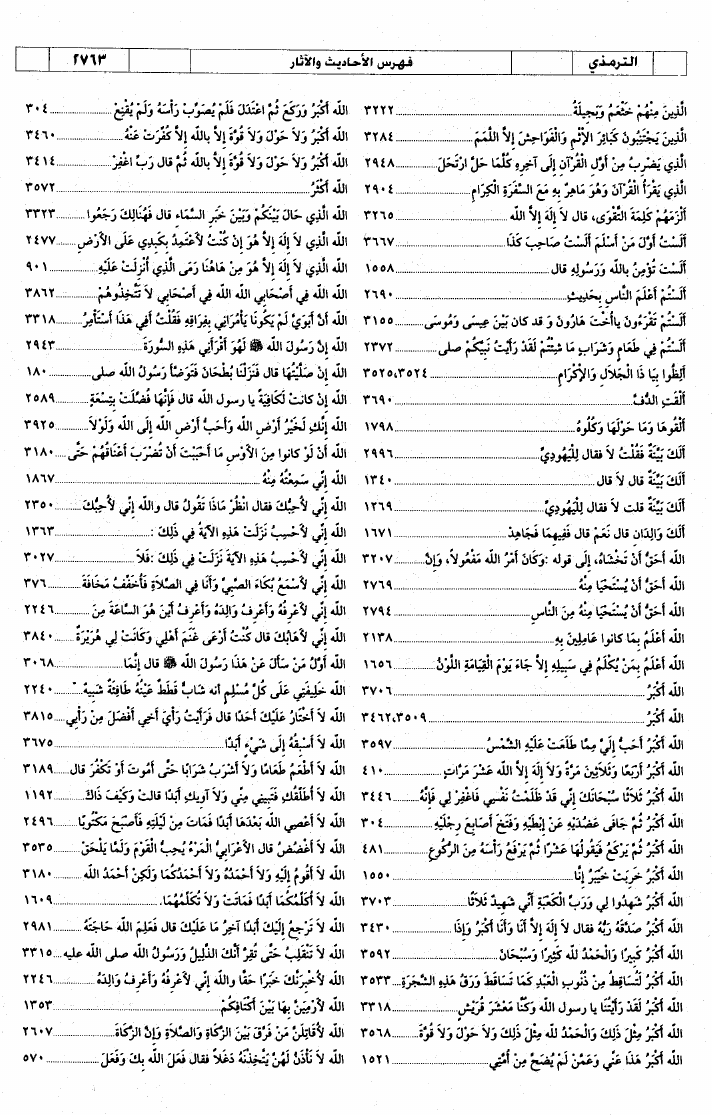 الترمذي
فهرس الأحاديث والآثار
٢٧٦٣
الَّذِينَ مِنْهُمْ خَثْعَمُ وَبَجِيلَةُ ٣٢٢٢
الَّذِينَ يَجْتَنِبُونَ كَبَائِرَ الإِثْمِ وَالْفَوَاحِشَ إِلاَّ اللَّمَمَ ٣٢٨٤
الَّذِي يَضْرِبُ مِنْ أَوَّلِ الْقُرْآنِ إِلَى آخِرِهِ كُلَّمَا حَلَّ ارْتَحَلَ ٢٩٤٨
الَّذِي يَقْرَأُ الْقُرْآنَ وَهُوَ مَاهِرٌ بِهِ مَعَ السَّفَرَةِ الْكِرَامِ ٢٩٠٤
أَلْزَمَهُمْ كَلِمَةَ التَّقْوَى، قال لاَ إِلَهَ إِلاَّ الله ٣٢٦٥
أَلَسْتُ أَوَّلَ مَنْ أَسْلَمَ أَلَسْتُ صَاحِبَ كَذَا ٣٦٦٧
أَلَسْتَ تُؤْمِنُ بالله وَرَسُولِهِ قال ١٥٥٨
أَلَسْتُمْ أَعْلَمَ النَّاسِ بِحَدِيثِ ٢٦٩٠
أَلَسْتُمْ تَقْرَءُونَ يَاأُخْتَ هَارُونَ وَ قد كان بَيْنَ عِيسَى وَمُوسَى ٣١٥٥
أَلَسْتُمْ فِي طَعَامٍ وَشَرَابٍ مَا شِئْتُمْ لَقَدْ رَأَيْتُ نَبِيَّكُمْ صلى ٢٣٧٢
أَلِظُّوا بِيَا ذَا الْجَلاَلِ وَالإِكْرَامِ ٣٥٢٥،٣٥٢٤
أَلْقَتِ الدُّفَّ ٣٦٩٠
أَلْقُوهَا وَمَا حَوْلَهَا وَكُلُوهُ ١٧٩٨
أَلَكَ بَيِّنَةٌ فَقُلْتُ لاَ فقال لِلْيَهُودِيِّ ٢٩٩٦
أَلَكَ بَيِّنَةٌ قال لاَ قال ١٣٤٠
أَلَكَ بَيِّنَةٌ قلت لاَ فقال لِلْيَهُودِيِّ ١٢٦٩
أَلَكَ وَالِدَانِ قال نَعَمْ قال فَفِيهِمَا فَجَاهِدْ ١٦٧١
الله أَحَقُّ أَنْ تَخْشَاهُ، إلى قوله :وَكَانَ أَمْرُ الله مَفْعُولاً، وَإِنَّ ٣٢٠٧
الله أَحَقُّ أَنْ يُسْتَحْيَا مِنْهُ ٢٧٦٩
الله أَحَقُّ أَنْ يُسْتَحْيَا مِنْهُ مِنَ النَّاسِ ٢٧٩٤
الله أَعْلَمُ بِمَا كانوا عَامِلِينَ بِهِ ٢١٣٨
الله أَعْلَمُ بِمَنْ يُكْلَمُ فِي سَبِيلِهِ إِلاَّ جَاءَ يَوْمَ الْقِيَامَةِ اللَّوْنُ ١٦٥٦
الله أَكْبَرُ ٣٧٠٦
الله أَكْبَرُ ٣٤٦٢،٣٥٠٩
الله أَكْبَرُ أَحَبُّ إِلَيَّ مِمَّا طَلَعَتْ عَلَيْهِ الشَّمْسُ ٣٥٩٧
الله أَكْبَرُ أَرْبَعًا وَثَلاَثِينَ مَرَّةً وَلاَ إِلَهَ إِلاَّ الله عَشْرَ مَرَّاتٍ ٤١٠
الله أَكْبَرُ ثَلاَثًا سُبْحَانَكَ إِنِّي قَدْ ظَلَمْتُ نَفْسِي فَاغْفِرْ لِي فَإِنَّهُ ٣٤٤٦
الله أَكْبَرُ ثُمَّ جَافَى عَضُدَيْهِ عَنْ إِبْطَيْهِ وَفَتَخَ أَصَابِعَ رِجْلَيْهِ ٣٠٤
الله أَكْبَرُ ثُمَّ يَرْكَعُ فَيَقُولُهَا عَشْرًا ثُمَّ يَرْفَعُ رَأْسَهُ مِنَ الرُّكُوعِ ٤٨١
الله أَكْبَرُ خَرِبَتْ خَيْبَرُ إِنَّا ١٥٥٠
الله أَكْبَرُ شَهِدُوا لِي وَرَبِّ الْكَعْبَةِ أَنِّي شَهِيدٌ ثَلاَثًا ٣٧٠٣
الله أَكْبَرُ صَدَّقَهُ رَبُّهُ فقال لاَ إِلَهَ إِلاَّ أَنَا وَأَنَا أَكْبَرُ وَإِذَا ٣٤٣٠
الله أَكْبَرُ كَبِيرًا وَالْحَمْدُ لله كَثِيرًا وَسُبْحَانَ ٣٥٩٢
الله أَكْبَرُ لَتُسَاقِطُ مِنْ ذُنُوبِ الْعَبْدِ كَمَا تَسَاقَطَ وَرَقُ هَذِهِ الشَّجَرَةِ ٣٥٣٣
الله أَكْبَرُ لَقَدْ رَأَيْتُنَا يا رسول الله وَكُنَّا مَعْشَرَ قُرَيْشٍ ٣٣١٨
الله أَكْبَرُ مِثْلَ ذَلِكَ وَالْحَمْدُ لله مِثْلَ ذَلِكَ وَلاَ حَوْلَ وَلاَ قُوَّةَ ٣٥٦٨
الله أَكْبَرُ هَذَا عَنِّي وَعَمَّنْ لَمْ يُضَحِّ مِنْ أُمَّتِي ١٥٢١
الله أَكْبَرُ وَرَكَعَ ثُمَّ اعْتَدَلَ فَلَمْ يُصَوِّبْ رَأْسَهُ وَلَمْ يُقْنِعْ ٣٠٤
الله أَكْبَرُ وَلاَ حَوْلَ وَلاَ قُوَّةَ إِلاَّ بالله إِلاَّ كُفِّرَتْ عَنْهُ ٣٤٦٠
الله أَكْبَرُ وَلاَ حَوْلَ وَلاَ قُوَّةَ إِلاَّ بالله ثُمَّ قال رَبِّ اغْفِرْ ٣٤١٤
الله أَكْثَرُ ٣٥٧٢
الله الَّذِي حَالَ بَيْنَكُمْ وَبَيْنَ خَبَرِ السَّمَاءِ قال فَهُنَالِكَ رَجَعُوا ٣٣٢٣
الله الَّذِي لاَ إِلَهَ إِلاَّ هُوَ إِنْ كُنْتُ لأَعْتَمِدُ بِكَبِدِي عَلَى الأَرْضِ ٢٤٧٧
الله الَّذِي لاَ إِلَهَ إِلاَّ هُوَ مِنْ هَاهُنَا رَمَى الَّذِي أُنْزِلَتْ عَلَيْهِ ٩٠١
الله الله فِي أَصْحَابِي الله الله فِي أَصْحَابِي لاَ تَتَّخِذُوهُمْ ٣٨٦٢
الله أَنَّ أَبَوَيَّ لَمْ يَكُونَا يَأْمُرَانِي بِفِرَاقِهِ فَقُلْتُ أَفِي هَذَا أَسْتَأْمِرُ ٣٣١٨
الله إِنَّ رَسُولَ الله ﷺ لَهُوَ أَقْرَأَنِي هَذِهِ السُّورَةَ ٢٩٤٣
الله إِنْ صَلَّيْتُهَا قال فَنَزَلْنَا بُطْحَانَ فَتَوَضَّأَ رَسُولُ الله صلى ١٨٠
الله إِنْ كانت لَكَافِيَةً يا رسول الله قال فَإِنَّهَا فُضِّلَتْ بِتِسْعَةٍ ٢٥٨٩
الله إِنَّكِ لَخَيْرُ أَرْضِ الله وَأَحَبُّ أَرْضِ الله إِلَى الله وَلَوْلاَ ٣٩٢٥
الله أَنْ لَوْ كانوا مِنَ الأَوْسِ مَا أَحْبَبْتَ أَنْ تُضْرَبَ أَعْنَاقُهُمْ حَتَّى ٣١٨٠
الله إِنِّي سَمِعْتُهُ مِنْهُ ١٨٦٧
الله إِنِّي لأُحِبُّكَ فقال انْظُرْ مَاذَا تَقُولُ قال والله إِنِّي لأُحِبُّكَ ٢٣٥٠
الله إِنِّي لأَحْسِبُ نَزَلَتْ هَذِهِ الآيَةُ فِي ذَلِكَ : ١٣٦٣
الله إِنِّي لأَحْسِبُ هَذِهِ الآيَةَ نَزَلَتْ فِي ذَلِكَ :فَلاَ ٣٠٢٧
الله إِنِّي لأَسْمَعُ بُكَاءَ الصَّبِيِّ وَأَنَا فِي الصَّلاَةِ فَأُخَفِّفُ مَخَافَةَ ٣٧٦
الله إِنِّي لأَعْرِفُهُ وَأَعْرِفُ وَالِدَهُ وَأَعْرِفُ أَيْنَ هُوَ السَّاعَةَ مِنَ ٢٢٤٦
الله إِنِّي لأَهَابُكَ قال كُنْتُ أَرْعَى غَنَمَ أَهْلِي وَكَانَتْ لِي هُرَيْرَةٌ ٣٨٤٠
الله أَوَّلُ مَنْ سَأَلَ عَنْ هَذَا رَسُولَ الله ﷺ قال إِنَّمَا ٣٠٦٨
الله خَلِيفَتِي عَلَى كُلِّ مُسْلِمٍ أنه شَابٌّ قَطَطٌ عَيْنُهُ طَافِئَةٌ شَبِيهٌ ٢٢٤٠
الله لاَ أَخْتَارُ عَلَيْكَ أَحَدًا قال فَرَأَيْتُ رَأْيَ أَخِي أَفْضَلَ مِنْ رَأْيِي ٣٨١٥
الله لاَ أَسْبِقُهُ إِلَى شَيْءٍ أَبَدًا ٣٦٧٥
الله لاَ أَطْعَمُ طَعَامًا وَلاَ أَشْرَبُ شَرَابًا حَتَّى أَمُوتَ أَوْ تَكْفُرَ قال ٣١٨٩
الله لاَ أُطَلِّقُكِ فَتَبِينِي مِنِّي وَلاَ آوِيكِ أَبَدًا قالت وَكَيْفَ ذَاكَ ١١٩٢
الله لاَ أَعْصِي الله بَعْدَهَا أَبَدًا فَمَاتَ مِنْ لَيْلَتِهِ فَأَصْبَحَ مَكْتُوبًا ٢٤٩٦
الله لاَ أَغْضُضُ قال الأَعْرَابِيُّ الْمَرْءُ يُحِبُّ الْقَوْمَ وَلَمَّا يَلْحَقْ ٣٥٣٥
الله لاَ أَقُومُ إِلَيْهِ وَلاَ أَحْمَدُهُ وَلاَ أَحْمَدُكُمَا وَلَكِنْ أَحْمَدُ الله ٣١٨٠
الله لاَ أُكَلِّمُكُمَا أَبَدًا فَمَاتَتْ وَلاَ تُكَلِّمُهُمَا. ١٦٠٩
الله لاَ تَرْجِعُ إِلَيْكَ أَبَدًا آخِرُ مَا عَلَيْكَ قال فَعَلِمَ الله حَاجَتَهُ ٢٩٨١
الله لاَ تَنْقَلِبُ حَتَّى تُقِرَّ أَنَّكَ الذَّلِيلُ وَرَسُولُ الله صلى الله عليه ٣٣١٥
الله لأُخْبِرَنَّكَ خَبَرًا حقا والله إِنِّي لأَعْرِفُهُ وَأَعْرِفُ وَالِدَهُ ٢٢٤٦
الله لأَرْمِيَنَّ بِهَا بَيْنَ أَكْتَافِكُمْ ١٣٥٣
الله لأُقَاتِلَنَّ مَنْ فَرَّقَ بَيْنَ الزَّكَاةِ وَالصَّلاَةِ وَإِنَّ الزَّكَاةَ ٢٦٠٧
الله لاَ نَأْذَنُ لَهُنَّ يَتَّخِذْنَهُ دَغَلاً فقال فَعَلَ الله بِكَ وَفَعَلَ ٥٧٠